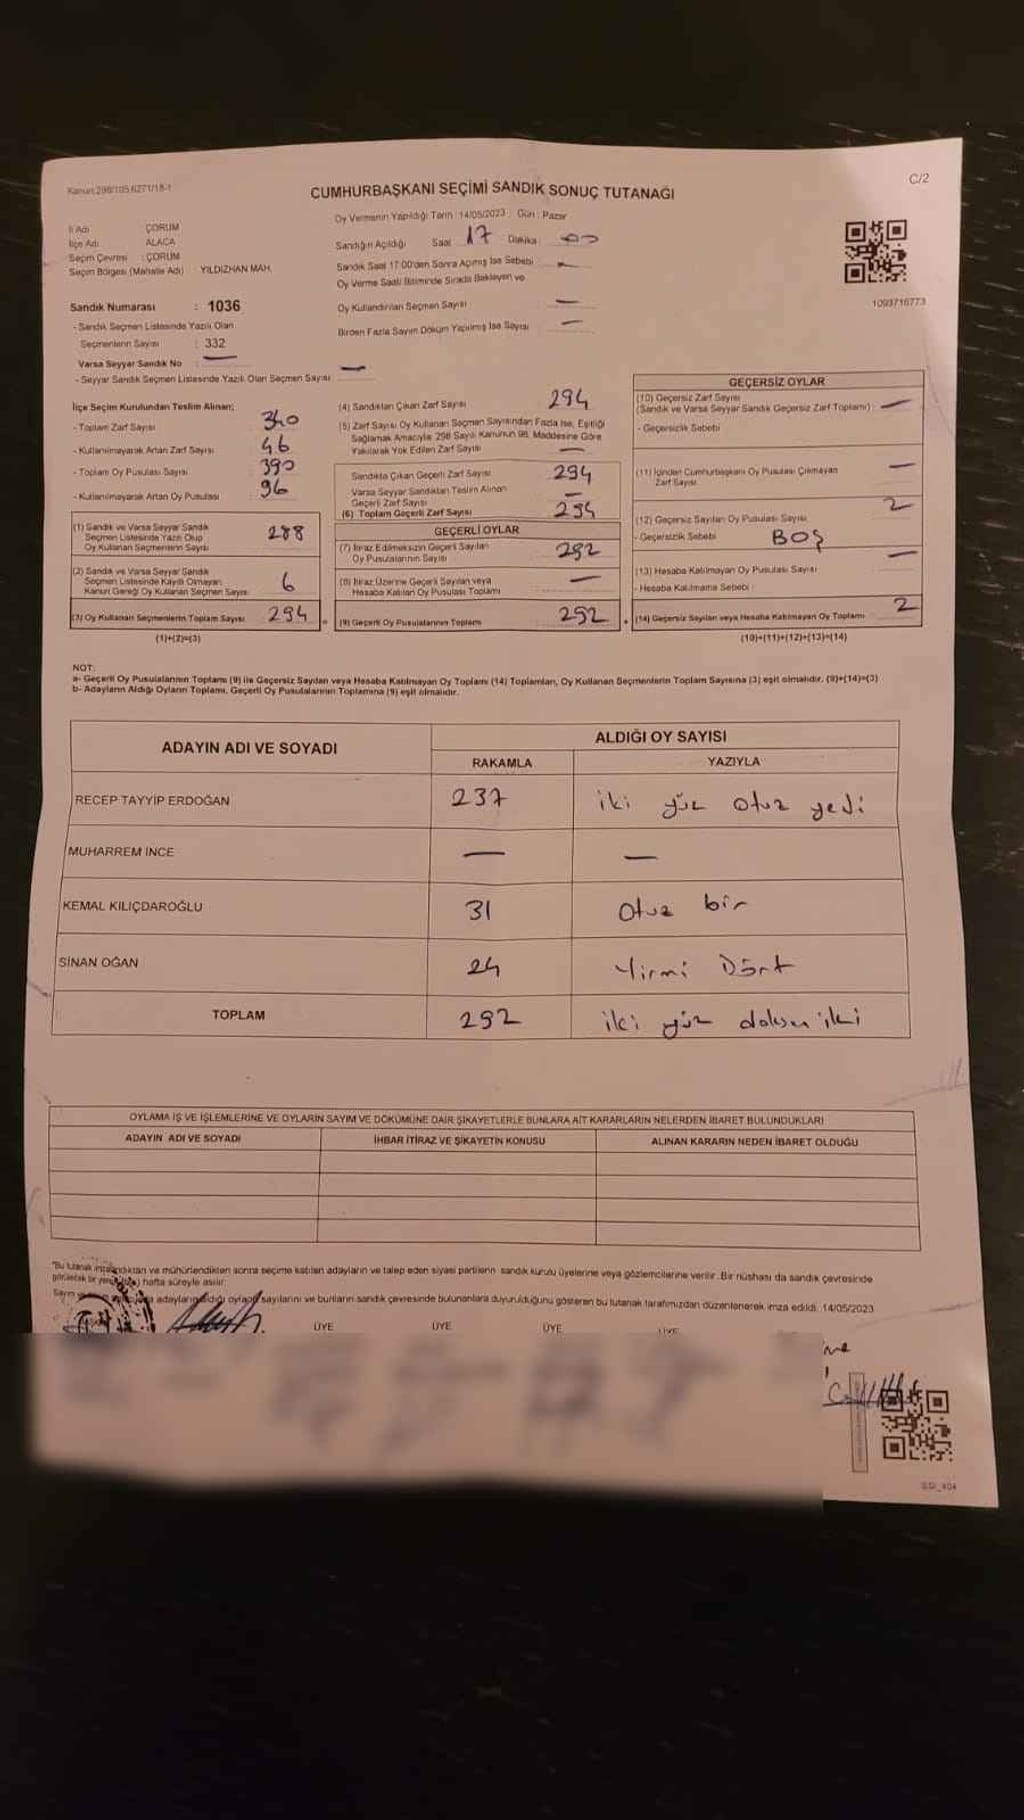 Kanun:298/105,6271/18-1
C/2
CUMHURBAŞKANI SEÇİMİ SANDIK SONUÇ TUTANAĞI
Oy Vermenin Yapıldığı Tarih : 14/05/2023 Gün : Pazar
İl Adı ÇORUM
İlçe Adı ALACA
Seçim Çevresi : ÇORUM
Seçim Bölgesi (Mahalle Adı) YILDIZHAN MAH.
Sandık Numarası : 1036
- Sandık Seçmen Listesinde Yazılı Olan
Seçmenlerin Sayısı : 332
Varsa Seyyar Sandık No : —
- Seyyar Sandık Seçmen Listesinde Yazılı Olan Seçmen Sayısı —
Sandığın Açıldığı Saat 17 Dakika : 00
Sandık Saat 17:00'den Sonra Açılmış İse Sebebi —
Oy Verme Saati Bitiminde Sırada Bekleyen ve
Oy Kullandırılan Seçmen Sayısı —
Birden Fazla Sayım Döküm Yapılmış İse Sayısı —
1093716773
İlçe Seçim Kurulundan Teslim Alınan;
- Toplam Zarf Sayısı 340
- Kullanılmayarak Artan Zarf Sayısı 46
- Toplam Oy Pusulası Sayısı 390
- Kullanılmayarak Artan Oy Pusulası 96
(1) Sandık ve Varsa Seyyar Sandık
Seçmen Listesinde Yazılı Olup
Oy Kullanan Seçmenlerin Sayısı 288
(2) Sandık ve Varsa Seyyar Sandık
Seçmen Listesinde Kayıtlı Olmayan
Kanun Gereği Oy Kullanan Seçmen Sayısı 6
(3) Oy Kullanan Seçmenlerin Toplam Sayısı 294
(1)+(2)=(3)
(4) Sandıktan Çıkan Zarf Sayısı 294
(5) Zarf Sayısı Oy Kullanan Seçmen Sayısından Fazla İse, Eşitliği
Sağlamak Amacıyla 298 Sayılı Kanunun 98. Maddesine Göre
Yakılarak Yok Edilen Zarf Sayısı —
Sandıkta Çıkan Geçerli Zarf Sayısı 294
Varsa Seyyar Sandıktan Teslim Alınan
Geçerli Zarf Sayısı —
(6) Toplam Geçerli Zarf Sayısı 294
GEÇERLİ OYLAR
(7) İtiraz Edilmeksizin Geçerli Sayılan
Oy Pusulalarının Sayısı 292
(8) İtiraz Üzerine Geçerli Sayılan veya
Hesaba Katılan Oy Pusulası Toplamı —
= (9) Geçerli Oy Pusulalarının Toplamı 292 +
GEÇERSİZ OYLAR
(10) Geçersiz Zarf Sayısı
(Sandık ve Varsa Seyyar Sandık Geçersiz Zarf Toplamı) : —
- Geçersizlik Sebebi
(11) İçinden Cumhurbaşkanı Oy Pusulası Çıkmayan
Zarf Sayısı —
(12) Geçersiz Sayılan Oy Pusulası Sayısı 2
- Geçersizlik Sebebi BOŞ
(13) Hesaba Katılmayan Oy Pusulası Sayısı —
- Hesaba Katılmama Sebebi :
(14) Geçersiz Sayılan veya Hesaba Katılmayan Oy Toplamı 2
(10)+(11)+(12)+(13)=(14)
NOT:
a- Geçerli Oy Pusulalarının Toplamı (9) ile Geçersiz Sayılan veya Hesaba Katılmayan Oy Toplamı (14) Toplamları, Oy Kullanan Seçmenlerin Toplam Sayısına (3) eşit olmalıdır. (9)+(14)=(3)
b- Adayların Aldığı Oyların Toplamı, Geçerli Oy Pusulalarının Toplamına (9) eşit olmalıdır.
ADAYIN ADI VE SOYADI
ALDIĞI OY SAYISI
RAKAMLA YAZIYLA
RECEP TAYYİP ERDOĞAN 237 iki yüz otuz yedi
MUHARREM İNCE — —
KEMAL KILIÇDAROĞLU 31 Otuz bir
SİNAN OĞAN 24 Yirmi Dört
TOPLAM 292 iki yüz doksan iki
OYLAMA İŞ VE İŞLEMLERİNE VE OYLARIN SAYIM VE DÖKÜMÜNE DAİR ŞİKAYETLERLE BUNLARA AİT KARARLARIN NELERDEN İBARET BULUNDUKLARI
ADAYIN ADI VE SOYADI İHBAR İTİRAZ VE ŞİKAYETİN KONUSU ALINAN KARARIN NEDEN İBARET OLDUĞU
"Bu tutanak imzalandıktan ve mühürlendikten sonra seçime katılan adayların ve talep eden siyasi partilerin sandık kurulu üyelerine veya gözlemcilerine verilir. Bir nüshası da sandık çevresinde
hafta süreyle asılır.
adayların aldığı oyların sayılarını ve bunların sandık çevresinde bulunanlara duyurulduğunu gösteren bu tutanak tarafımızdan düzenlenerek imza edildi. 14/05/2023
ÜYE ÜYE ÜYE ÜYE